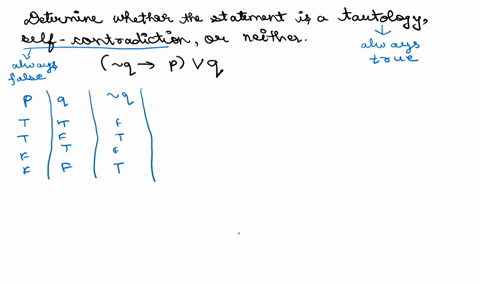 Determine whether the statement is a tautology,
self-contradiction, or neither.
always
true
always
false
(~q → p) ∨ q
P q ~q
T T F
T F T
F T F
F F T